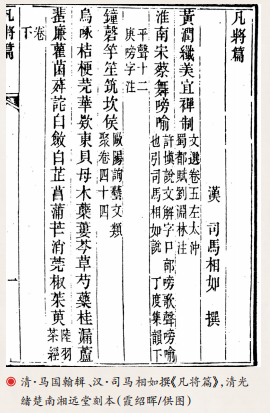 凡將篇
漢 司馬相如 撰
黃潤纖美宜禪制 文選卷五左太沖
蜀都賦劉淵林注
淮南宋蔡舞嗙喻 許慎說文解字口部嗙歌聲嗙喻
也引司馬相如說 丁度集韻下
平聲十二
庚嗙字注
鐘磬竽笙筑坎侯 歐陽詢藝文類
聚卷四十四
烏喙桔梗芫華款東貝母木蘗蔞芩草芍藥桂漏蘆
蜚廉雚菌荈詫白斂白芷菖蒲芒消莞椒茱萸 陸羽
茶經
凡將篇
卷下
一
清·马国翰辑,汉·司马相如撰《凡将篇》,清光
绪楚南湘远堂刻本(霞绍晖/供图)